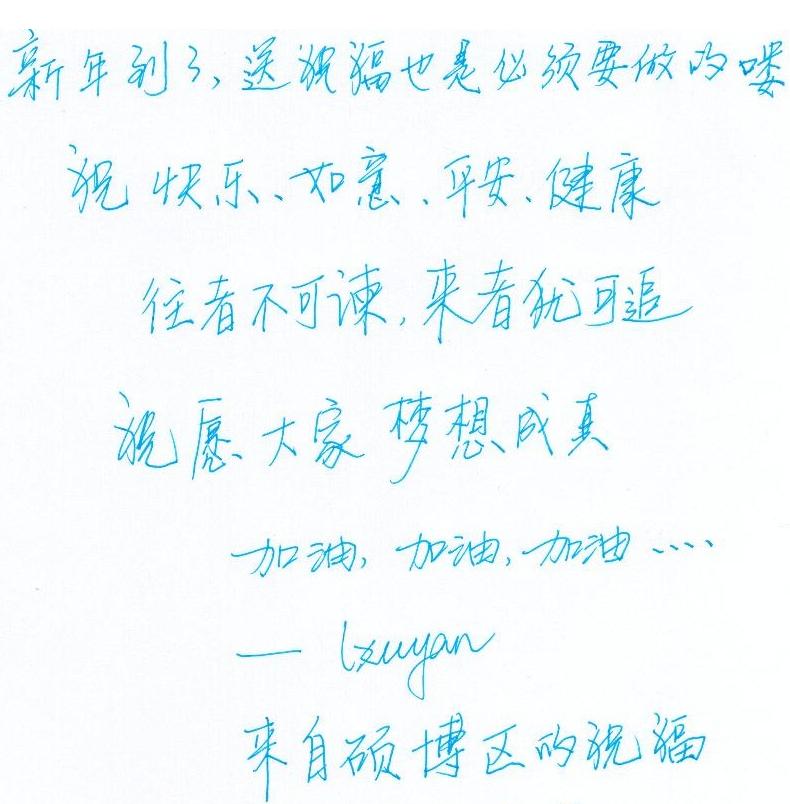 新年到了,送祝福也是必须要做的喽
祝 快乐、如意、平安、健康
往者不可谏,来者犹可追
祝愿大家梦想成真
加油,加油,加油....
— lxuyan
来自硕博区的祝福